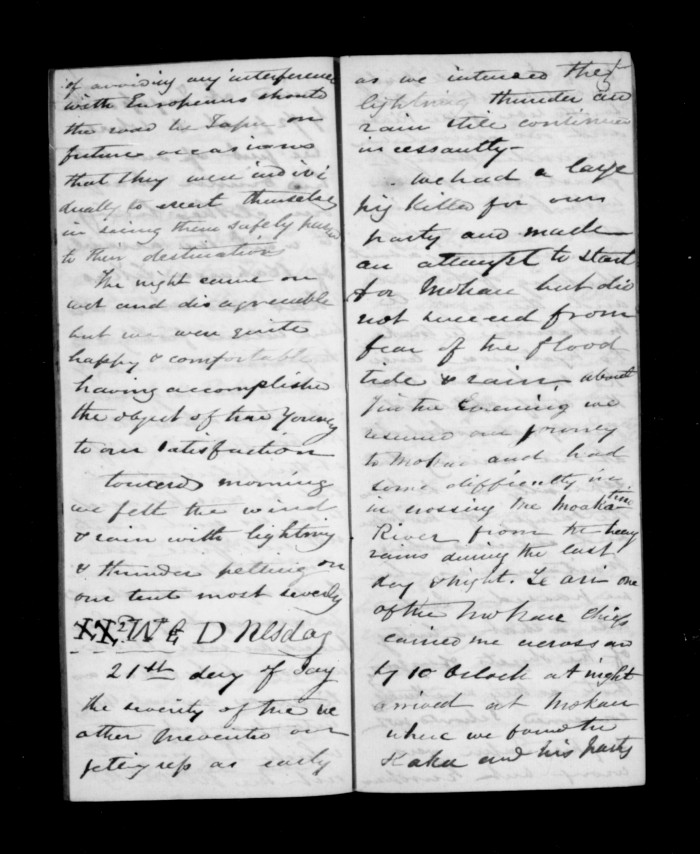 of avoiding any interference
with Europeans should
the road to Taipu on
future occasions
that they were indivi
dually to exert themselves
in seeing them safely passed
to their destination
The night came on
wet and disagreeable
but we were quite
happy & comfortable
having accomplished
the object of the Journey
to our satisfaction
towards morning
we felt the wind
& rain with lightning
& thunder pelting on
our tents most severely
Wednesday
21st day of Jay
the severity of the we
ather prevented our
geting up as early
as we intended the
lightning thunder and
rain still continued
incessantly -
we had a large
pig killed for our
party and made
an attempt to start
for Mokau but did
not succeed from
fear of the flood
tide & rain, about
7 in the Evening we
resumed our journey
to Mokau and had
some difficulty in
in crossing the Moaka
tino
River from the heavy
rains during the last
day & night. Te one
of the Mokau chiefs
carried me across and
by 10 Oclock at night
arrived at Mokau
where we found the
and his party